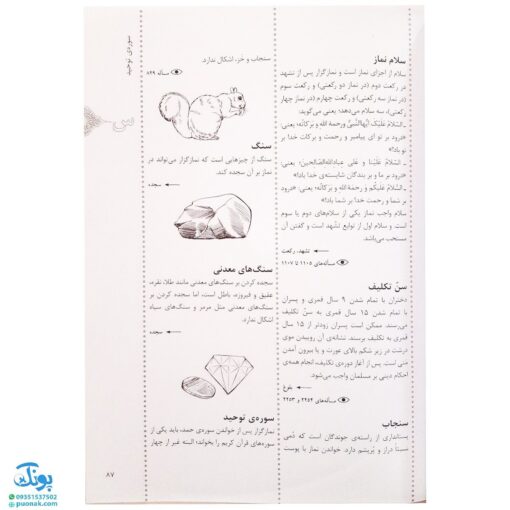 سوره‌ی توحید
س
سلام نماز
سلام از اجزای نماز است و نمازگزار پس از تشهد
در رکعت دوم (در نماز دو رکعتی) و رکعت سوم
(در نماز سه رکعتی) و رکعت چهارم (در نماز چهار
رکعتی)، سه سلام می‌دهد؛ یعنی می‌گوید:
ـ السّلامُ عَلَیکَ اَیُّهَا النَّبیُّ وَ رحمة الله و بَرَکاتُه، یعنی:
«درود بر تو ای پیامبر و رحمت و برکات خدا بر
تو باد!»
ـ السّلامُ عَلَینا وَ عَلی عِبادِ اللهِ الصّالِحین؛ یعنی:
«درود بر ما و بر بندگان شایسته‌ی خدا باد!»
ـ السّلامُ عَلَیکُم وَ رَحمَةُ الله وَ بَرَکاتُه؛ یعنی: «درود
بر شما و رحمت خدا بر شما باد!»
سلام واجب نماز یکی از سلام‌های دوم یا سوم
است و سلام اول از توابع تشهد است و گفتن آن
مستحب می‌باشد.
تشهد، رکعت
مسأله‌های ۱۱۰۵ تا ۱۱۰۷
سنّ تکلیف
دختران با تمام شدن ۹ سال قمری و پسران
با تمام شدن ۱۵ سال قمری به سن تکلیف
می‌رسند. ممکن است پسران زودتر از ۱۵ سال
قمری به تکلیف برسند. نشانه‌ی آن روییدن موی
درشت در زیر شکم بالای عورت و یا بیرون آمدن
منی است. پس از آغاز دوره‌ی تکلیف، انجام همه‌ی
احکام دینی بر مسلمان واجب می‌شود.
بلوغ
مسأله‌های ۲۲۵۲ و ۲۲۵۳
سنجاب
پستانداری از راسته‌ی جوندگان است که دُمی
نسبتاً دراز و پُرپشم دارد. خواندن نماز با پوست
سنجاب و خز، اشکال ندارد.
مسأله ۸۲۹
سنگ
سنگ از چیزهایی است که نمازگزار می‌تواند در
نماز بر آن سجده کند.
سجده
سنگ‌های معدنی
سجده کردن بر سنگ‌های معدنی مانند طلا، نقره،
عقیق و فیروزه، باطل است، اما سجده کردن بر
سنگ‌های معدنی مثل مرمر و سنگ‌های سیاه
اشکال ندارد.
سجده
سوره‌ی توحید
نمازگزار پس از خواندن سوره‌ی حمد، باید یکی از
سوره‌های قرآن کریم را بخواند؛ البته غیر از چهار
۸۷
پونک
09351537502
puonak.com